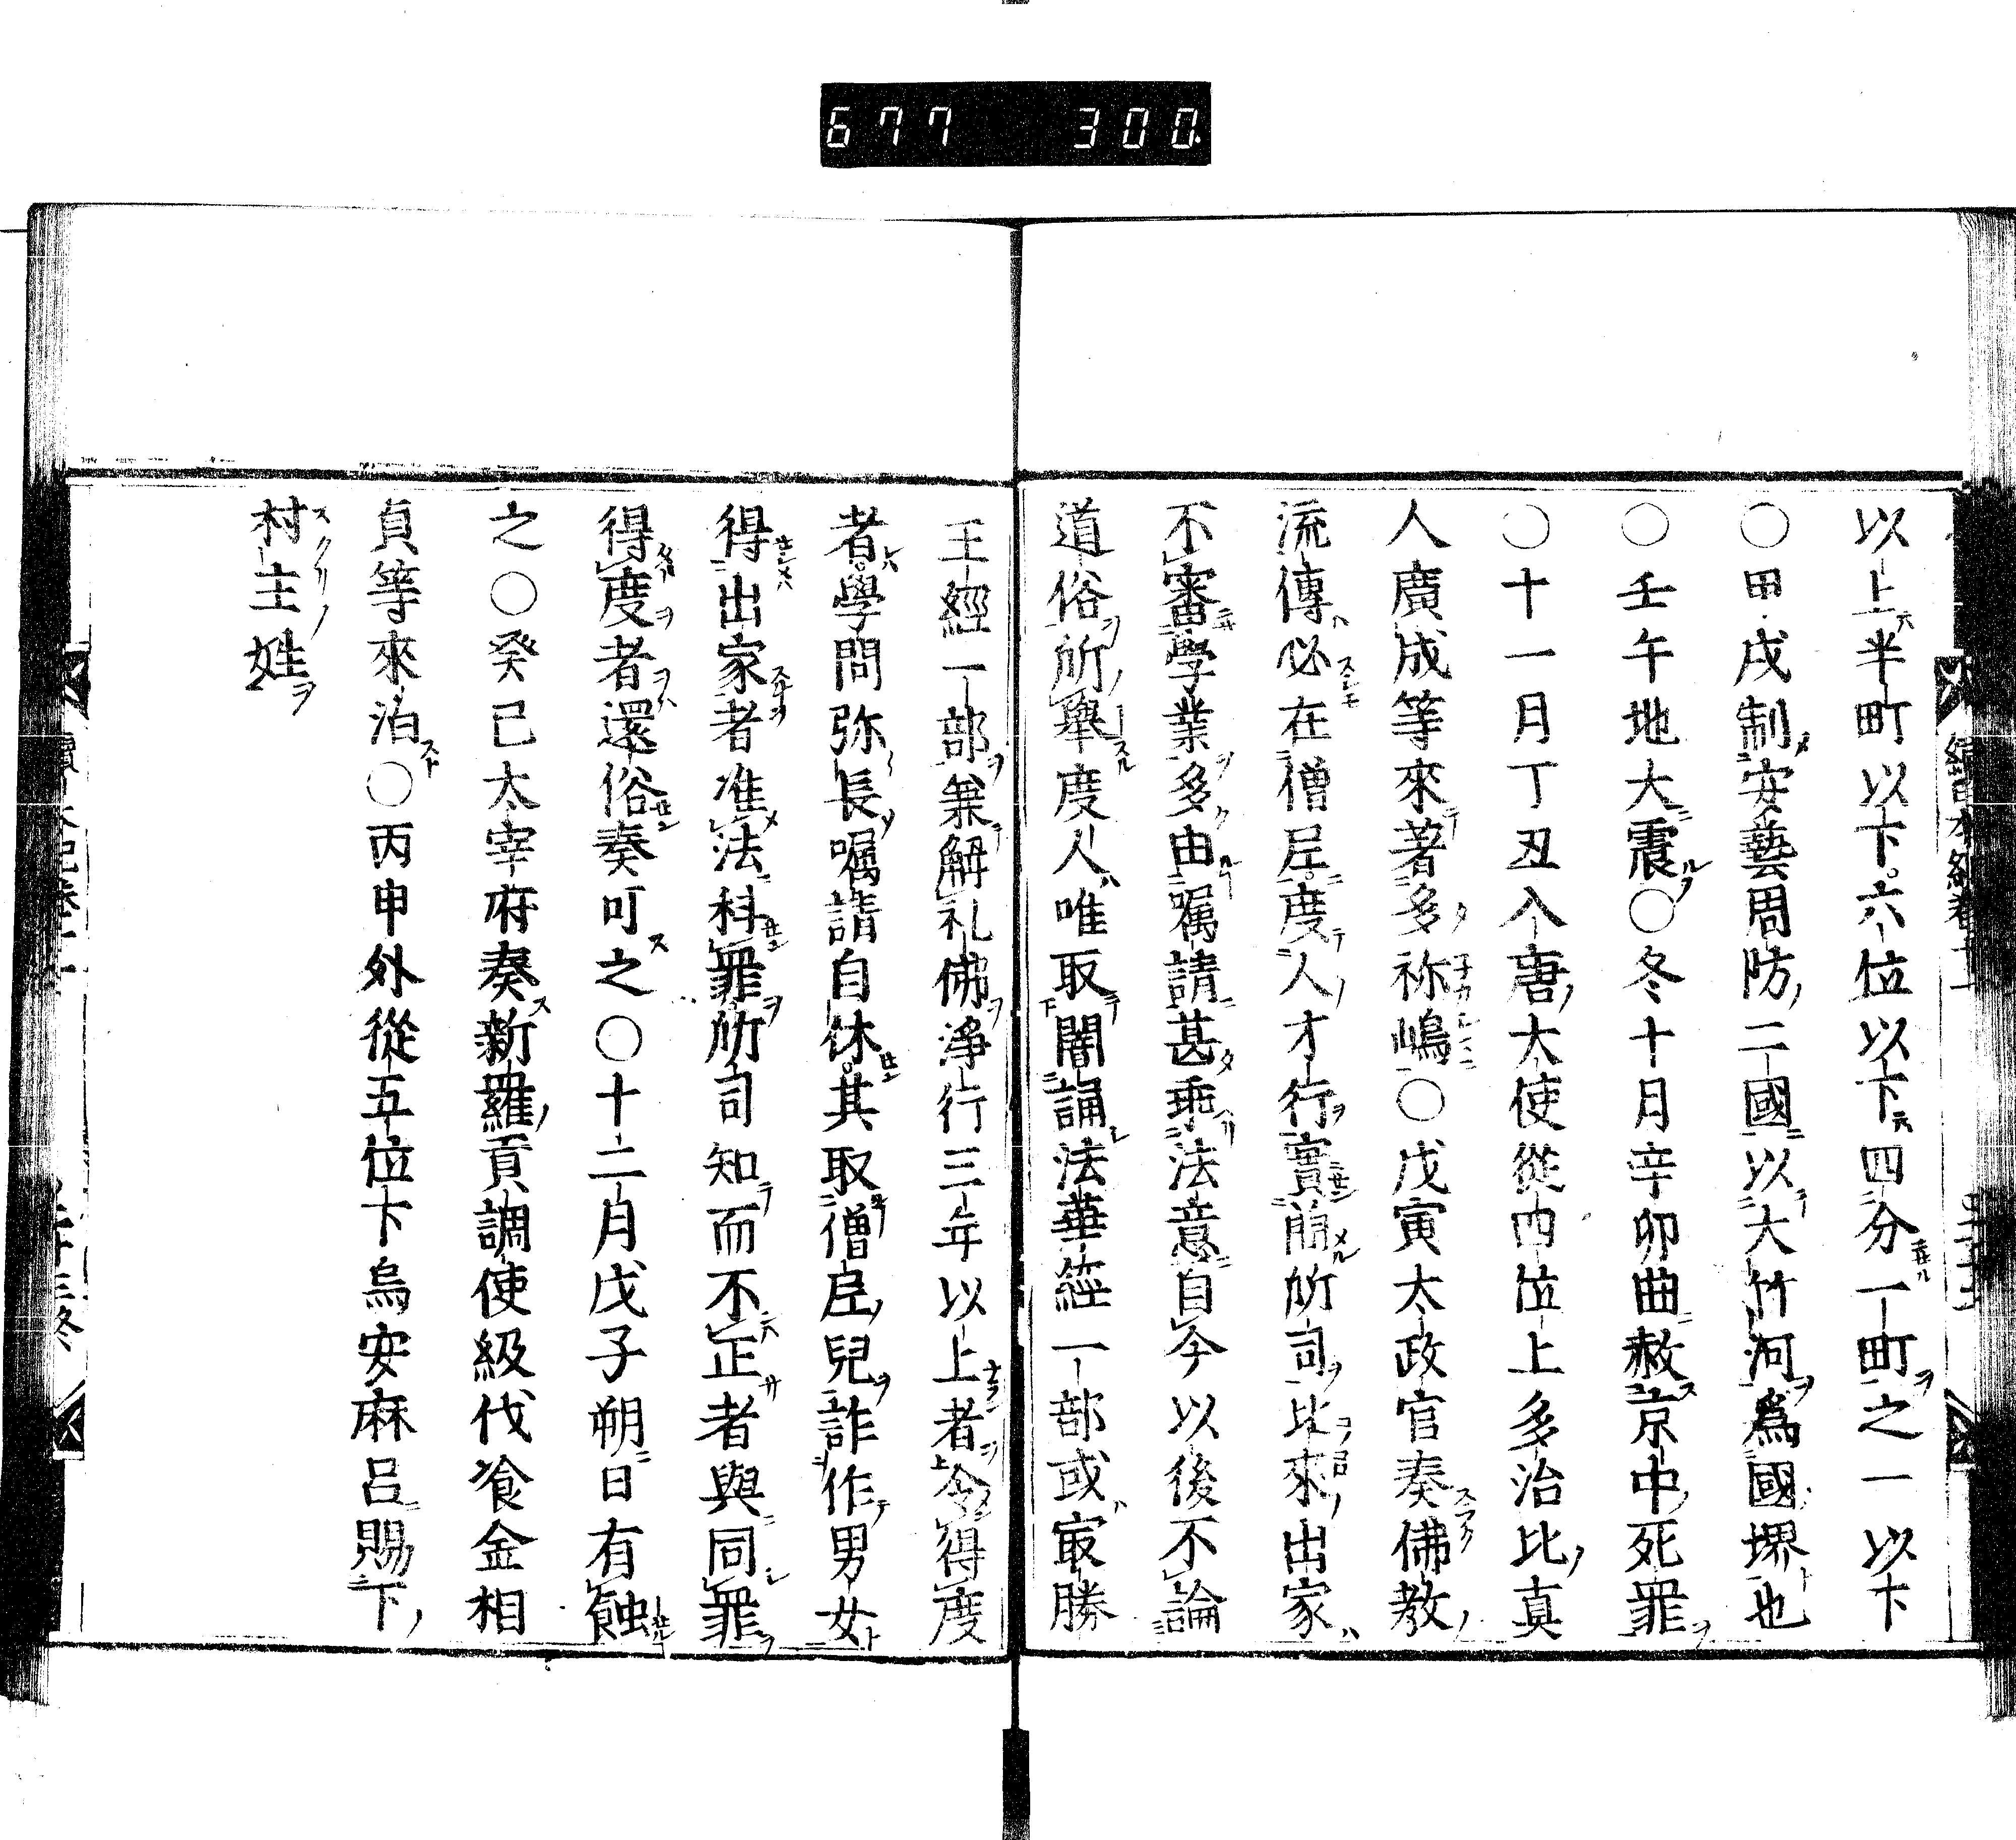 677 300
以上半町以下六位以下四分一町之一以下
○甲戌制安藝周防二國以大竹河爲國堺也
○壬午地大震○冬十月辛卯曲赦京中死罪
○十一月丁丑入唐大使從四位上多治比真
人廣成等來著多祢嶋○戊寅太政官奏佛教
流傳必在僧尼度人才行實簡所司比來出家
不審學業多由嘱請甚乖法意自今以後不論
道俗所擧度人唯取闇誦法華經一部或冣勝
王經一部兼解礼佛浄行三年以上者令得度
者學問弥長嘱請自休其取僧尼兒詐作男女
得出家者准法科罪所司知而不正者與同罪
得度者還俗奏可之○十二月戊子朔日有蝕
之○癸巳太宰府奏新羅貢調使級伐飡金相
貞等來泊○丙申外從五位下烏安麻呂賜下
村主姓